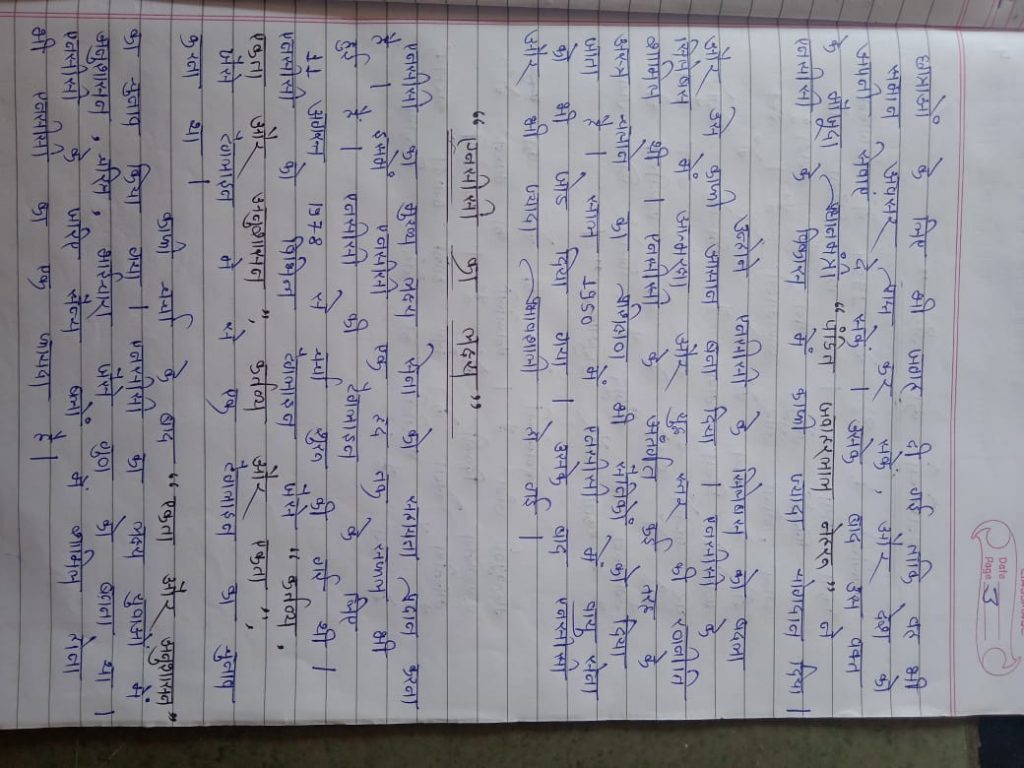 Date
Page 3
छात्राओं के लिए भी प्रचार दी गई ताकि वह भी
समान अवसर प्राप्त कर सके, और देश को
अपनी सेवाएं दे सके। उसके बाद उस वक्त
के मौजूदा प्रधानमंत्री "पंडित जवाहरलाल नेहरू" ने
एनसीसी के विकास में काफी ज्यादा योगदान दिया।
उन्होंने एनसीसी के सिलेबस को बदला
और उसे काफी आसान बना दिया। एनसीसी के
सिलेबस में आत्मरक्षा और युद्ध स्तर की रणनीति
शामिल थी। एनसीसी के अंतर्गत कई तरह के
शस्त्र चलाने का प्रशिक्षण भी सैनिकों को दिया
जाता है। साल 1950 में एनसीसी में वायु सेना
को भी जोड़ दिया गया। उसके बाद एनसीसी
और भी ज्यादा प्रभावशाली हो गई।
"एनसीसी का लक्ष्य"
एनसीसी का मुख्य लक्ष्य सेना को सहायता प्रदान करना
है। इसमें एनसीसी एक हद तक सफल भी
हुई है। एनसीसी की टैगलाइन के लिए
11 अगस्त 1978 से चर्चा शुरू की गई थी।
एनसीसी को विभिन्न टैगलाइन जैसे "कर्तव्य,
एकता और अनुशासन", कर्तव्य और एकता",
जैसे टैगलाइन में से एक टैगलाइन का चुनाव
करना था।
काफी चर्चा के बाद "एकता और अनुशासन"
का चुनाव किया गया। एनसीसी का लक्ष्य युवाओं में
अनुशासन, चरित्र, भाईचारा जैसे गुण को डालना था।
एनसीसी के जरिए सैन्य बलों में शामिल होना
भी एनसीसी का एक फायदा है।